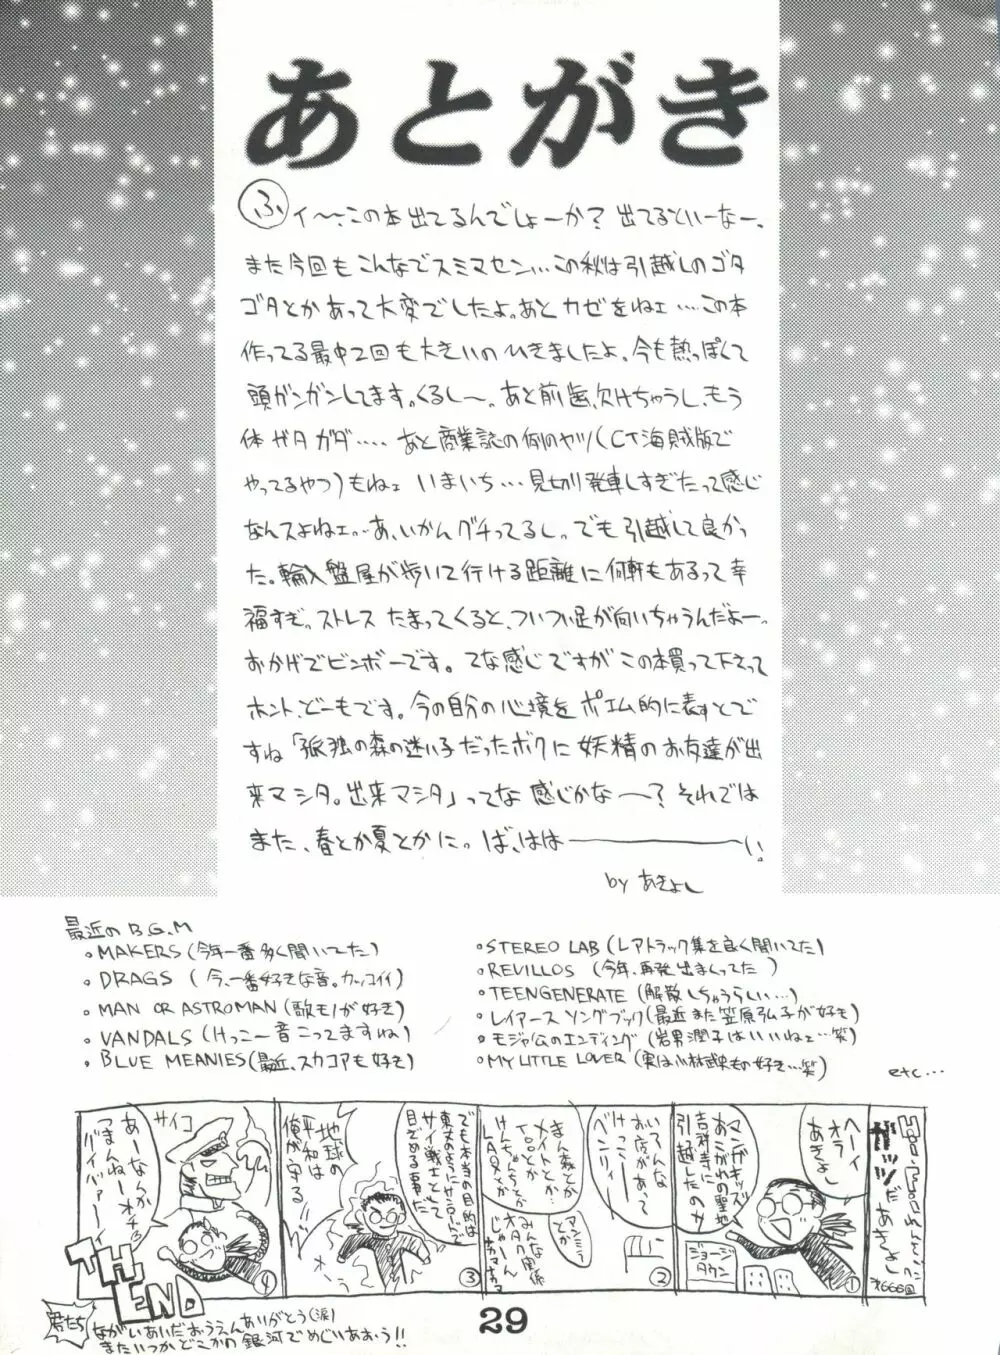 あとがき
ふィ〜、この本出てるんでしょーか？出てるといーなー、
また今回もこんなでスミマセン…この秋は引越しのゴタ
ゴタとかあって大変でしたよ。あとカゼをねェ…この本
作ってる最中2回も大きいのひきましたよ、今も熱っぽくて
頭ガンガンしてます。くるし〜。あと前歯、欠けちゃうし、もう
体ガタガタ‥‥あと商業誌の例のヤツ(CT海賊版で
やってるやつ)もねェいまいち…見切り発車しすぎたって感じ
なんスよねェ…あ、いかんグチってるし。でも引越して良かっ
た。輸入盤屋が歩いて行ける距離に何軒もあるって幸
福すぎ。ストレスたまってくると、ついつい足が向いちゃうんだよー。
おかげでビンボーです。てな感じですがこの本買って下さって
ホント、どーもです。今の自分の心境をポエム的に表すとで
すね「孤独の森の迷い子だったボクに妖精のお友達が出
来マシタ。出来マシタ」ってな感じかな〜？それでは
また、春とか夏とかに。ば、はは――――い!
by あきよし
最近のB.G.M
・MAKERS(今年一番多く聞いてた)
・DRAGS (今、一番好きな音。カッコイイ)
・MAN OR ASTROMAN(歌モノが好き)
・VANDALS(けっこー音こってますね)
・BLUE MEANIES(最近、スカコアも好き)
・STEREO LAB(レアトラック集を良く聞いてた)
・REVILLOS (今年、再発出まくってた)
・TEENGENERATE(解散しちゃうらしい…)
・レイアースソングブック(最近また笠原弘子が好も)
・モジャ公のエンディング(岩男潤子はいいねェ…笑)
・MY LITTLE LOVER(実は小林武史もの好き…笑)
etc…
ガッツだあきよし
第666回
ヘーイ
オラ
あきよし
マンガキッズ
あこがれの聖地
吉祥寺に
引越したのサ
ジョージ
タウン
①
いろんな
お店があって
けっこー
ベンリィ
②
まんが森とか
メイトとか
けんちゃんちとか
LAOXとか
アンミラ
とか
みんな
オタク関係
じゃーん
③
でも本当の目的は
サイ戦士として
目ざめる事だ
地球の
平和は
俺が守る!!
サイコ
④
あーなんか
つまんねーオチ
バイバァーイ
THE
END
君たち
ながいあいだおうえんありがとう(涙)
またいつかどこかの銀河でめぐりあおう!!
29